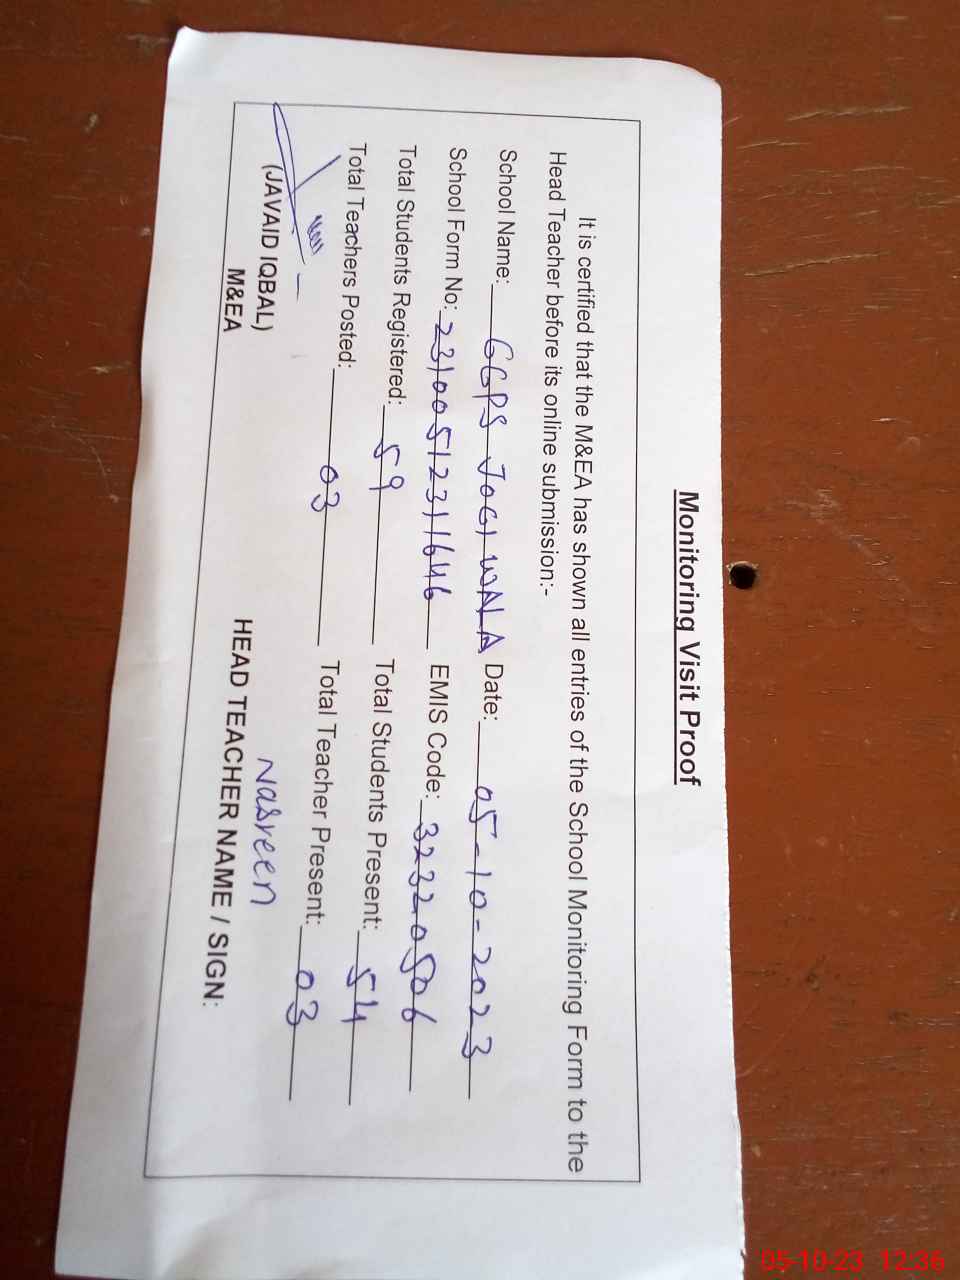 Monitoring Visit Proof
It is certified that the M&EA has shown all entries of the School Monitoring Form to the
Head Teacher before its online submission:-
School Name: GGPS JOGI WALA Date: 05-10-2023
School Form No: 23100512311646 EMIS Code: 32320506
Total Students Registered: 59 Total Students Present: 54
Total Teachers Posted: 03 Total Teacher Present: 03
Nasreen
(JAVAID IQBAL)
M&EA
HEAD TEACHER NAME / SIGN:
05-10-23 12:36